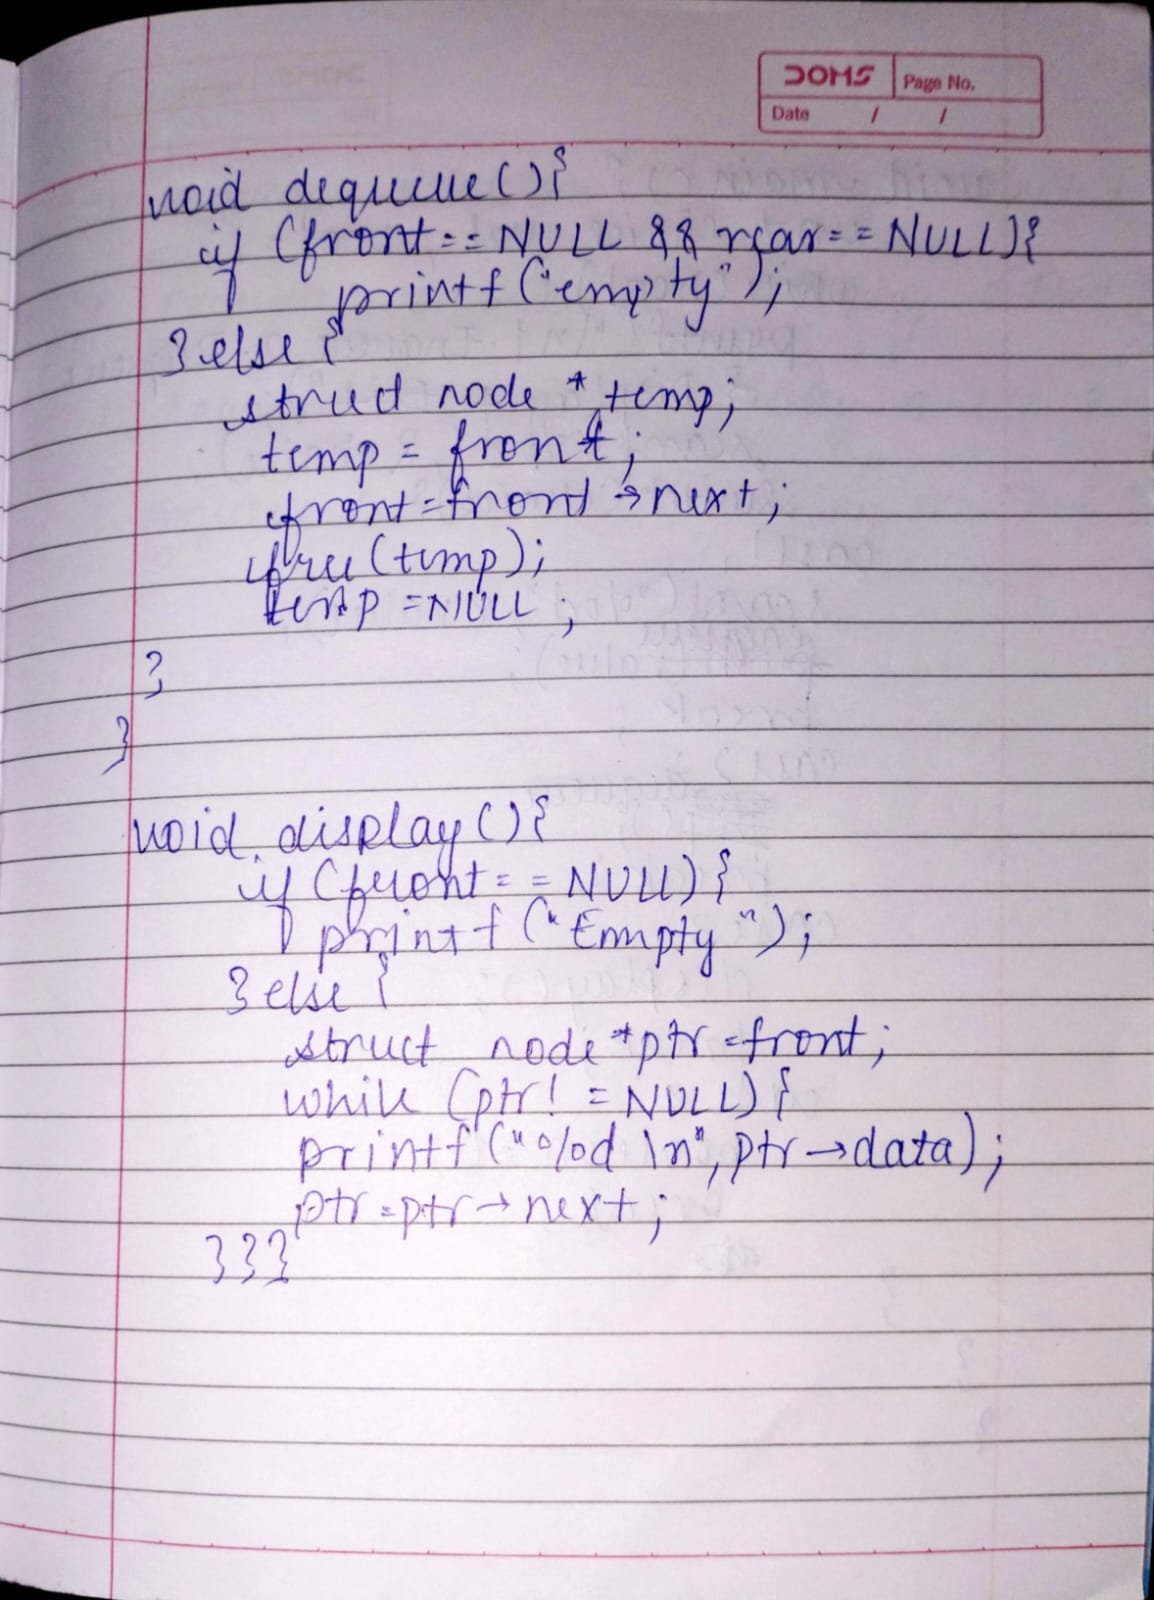 DOMS
Page No.
Date / /
void dequeue(){
if (front==NULL && rear==NULL){
printf("empty");
}else{
struct node *temp;
temp = front;
front=front→next;
free(temp);
temp =NULL;
}
}
void display(){
if (front==NULL){
printf("Empty");
}else{
struct node *ptr=front;
while (ptr!=NULL){
printf("%d \n", ptr→data);
ptr=ptr→next;
}}}